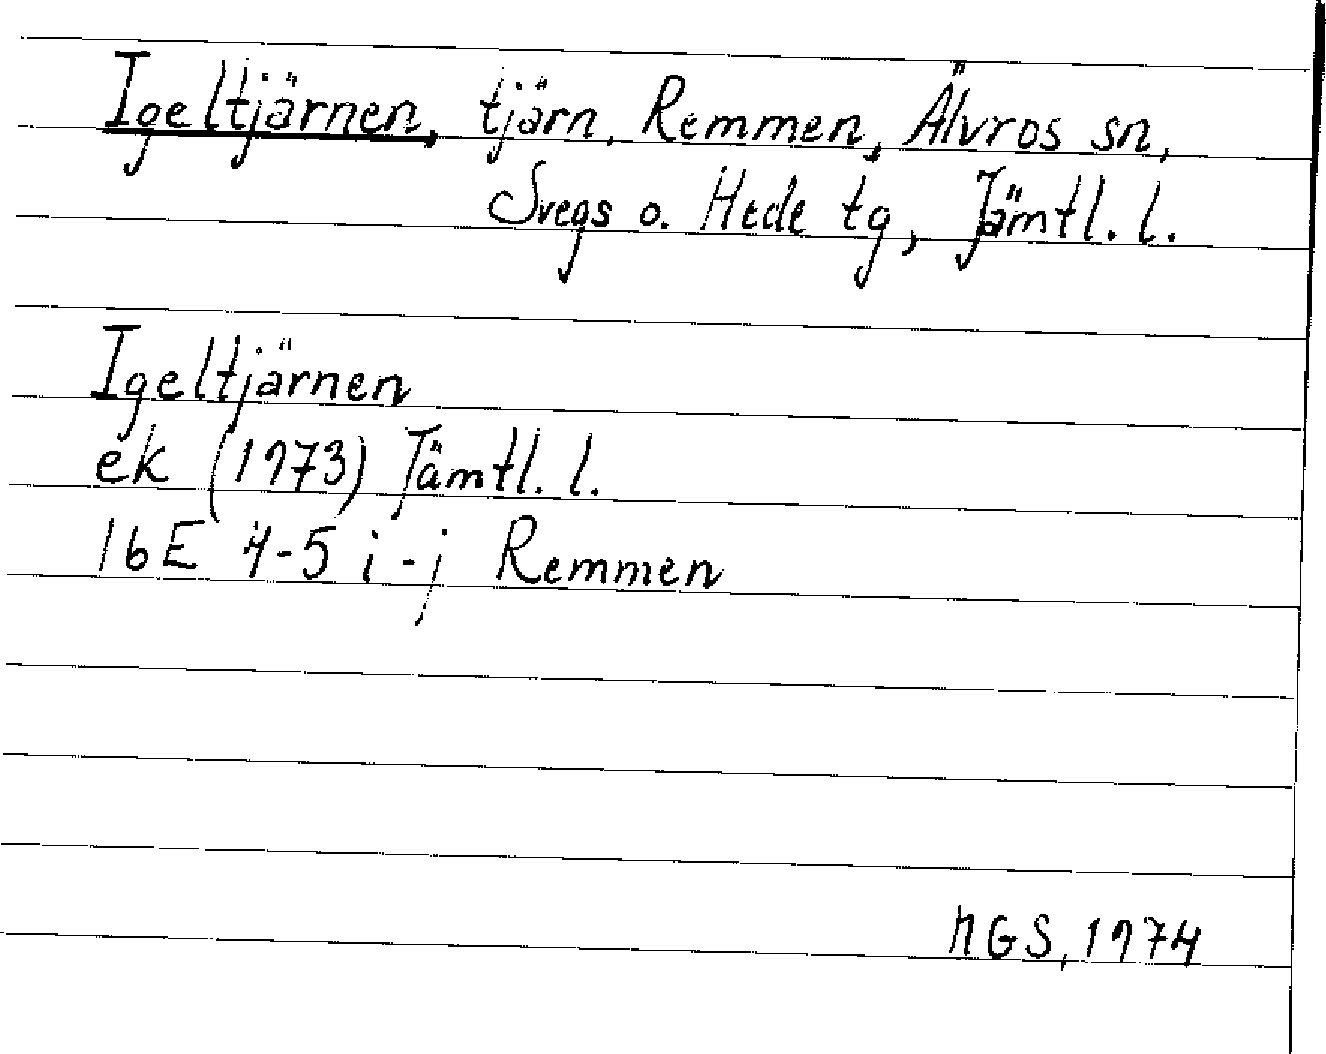 Igeltjärnen, tjärn, Remmen, Älvros sn,
Svegs o. Hede tg, Jämtl. l.
Igeltjärnen
ek (1973) Jämtl. l.
16E 4-5 i-j Remmen
NGS, 1974